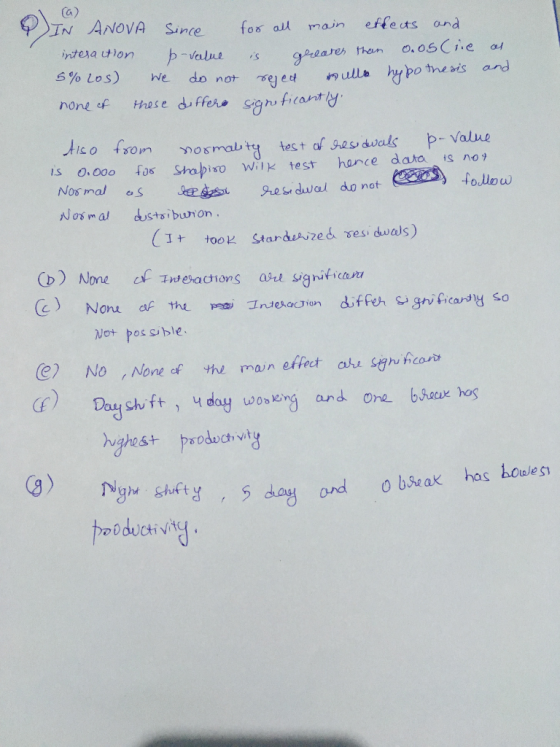 Q) (a)
IN ANOVA Since for all main effects and
interaction p-value is greater than 0.05 (i.e at
5% LOS) We do not reject null hypothesis and
none of these differ significantly.
Also from normality test of residuals p-value
is 0.000 for Shapiro Wilk test hence data is not
Normal as residual do not follow
Normal distribution.
(It took standerized residuals)
(b) None of Interactions are significant
(c) None of the Interaction differ significantly so
Not possible.
(e) NO, None of the main effect are significant
(f) Day shift, 4 day working and one break has
highest productivity
(g) Night shifty, 5 day and 0 break has lowest
productivity.